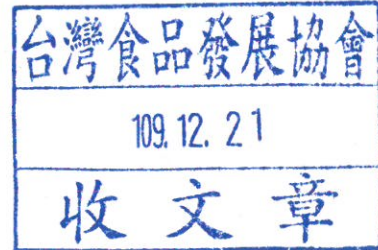 台灣食品發展協會
109.12.21
收文章